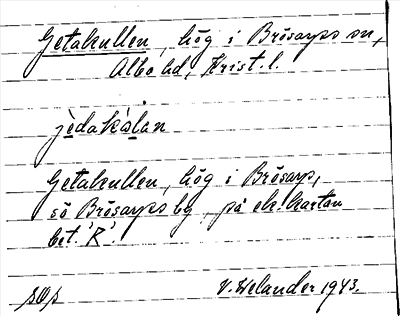 Getakullen, hög i Brösarps sn,
Albo hd, Krist. l.
jèdakàlan
Getakullen, hög i Brösarp,
sö Brösarps by, på ek. kartan
bet. 'R'.
V. Welander 1943.